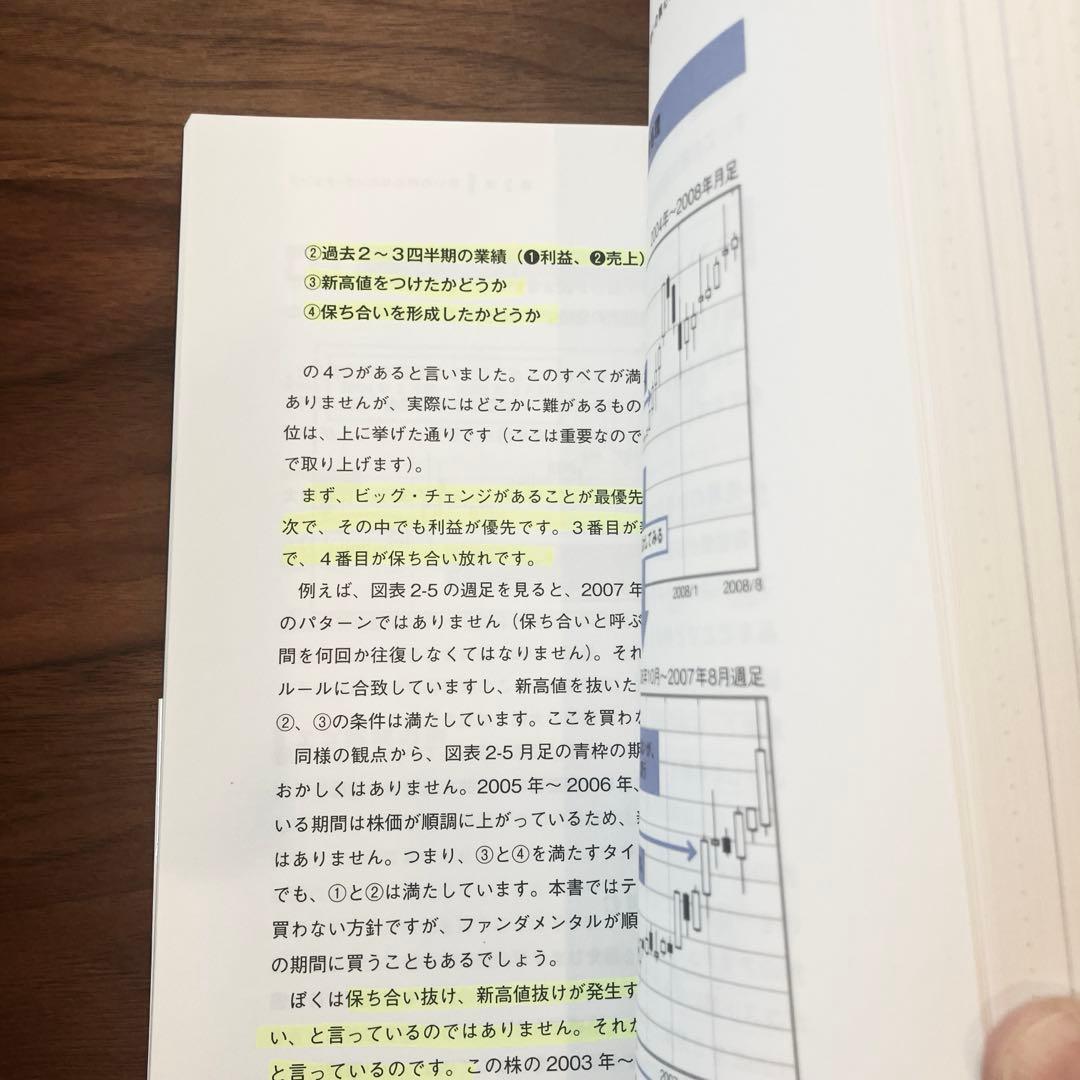 ②過去2～3四半期の業績(❶利益、❷売上)
③新高値をつけたかどうか
④保ち合いを形成したかどうか
の4つがあると言いました。このすべてが満
ありませんが、実際にはどこかに難があるもの
位は、上に挙げた通りです(ここは重要なので
で取り上げます)。
まず、ビッグ・チェンジがあることが最優先
次で、その中でも利益が優先です。3番目が
で、4番目が保ち合い放れです。
例えば、図表2-5の週足を見ると、2007年
のパターンではありません(保ち合いと呼ぶ
間を何回か往復しなくてはなりません)。それ
ルールに合致していますし、新高値を抜いた
②、③の条件は満たしています。ここを買わ
同様の観点から、図表2-5月足の青枠の期
おかしくはありません。2005年～2006年、
いる期間は株価が順調に上がっているため、
はありません。つまり、③と④を満たすタイ
でも、①と②は満たしています。本書ではテ
買わない方針ですが、ファンダメンタルが順
の期間に買うこともあるでしょう。
ぼくは保ち合い抜け、新高値抜けが発生す
い、と言っているのではありません。それが
と言っているのです。この株の2003年～
2004年～2008年月足
してみる
2008/1
2008/8
年10月～2007年8月週足